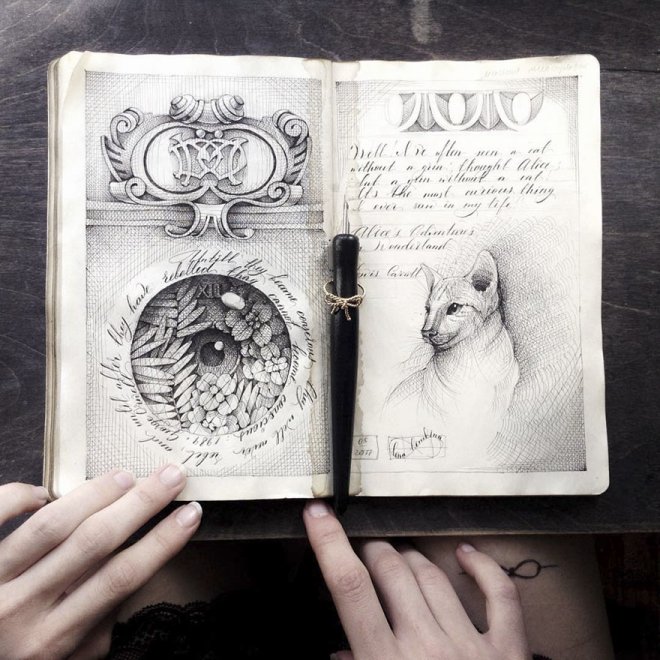 XII
they will never rebel and until after they have rebelled they cannot become conscious
1984.
Well! I've often seen a cat
without a grin; thought Alice;
but a grin without a cat
It's the most curious thing
I ever saw in my life
Alice's Adventures
in Wonderland
Lewis Carroll
05
2017